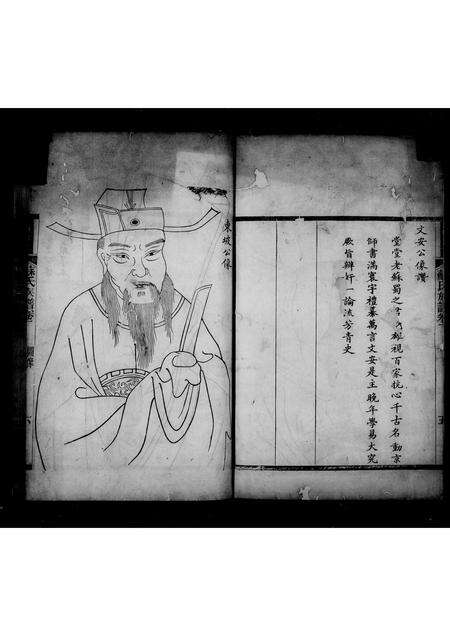 文安公像讚
堂堂老蘇蜀之 雄視百家抗心千古名動京
師書滿寰宇禮纂萬言文安是主晚年學易大究
厥旨辨奸一論流芳青史
五
東坡公像
蘇氏族譜卷
六